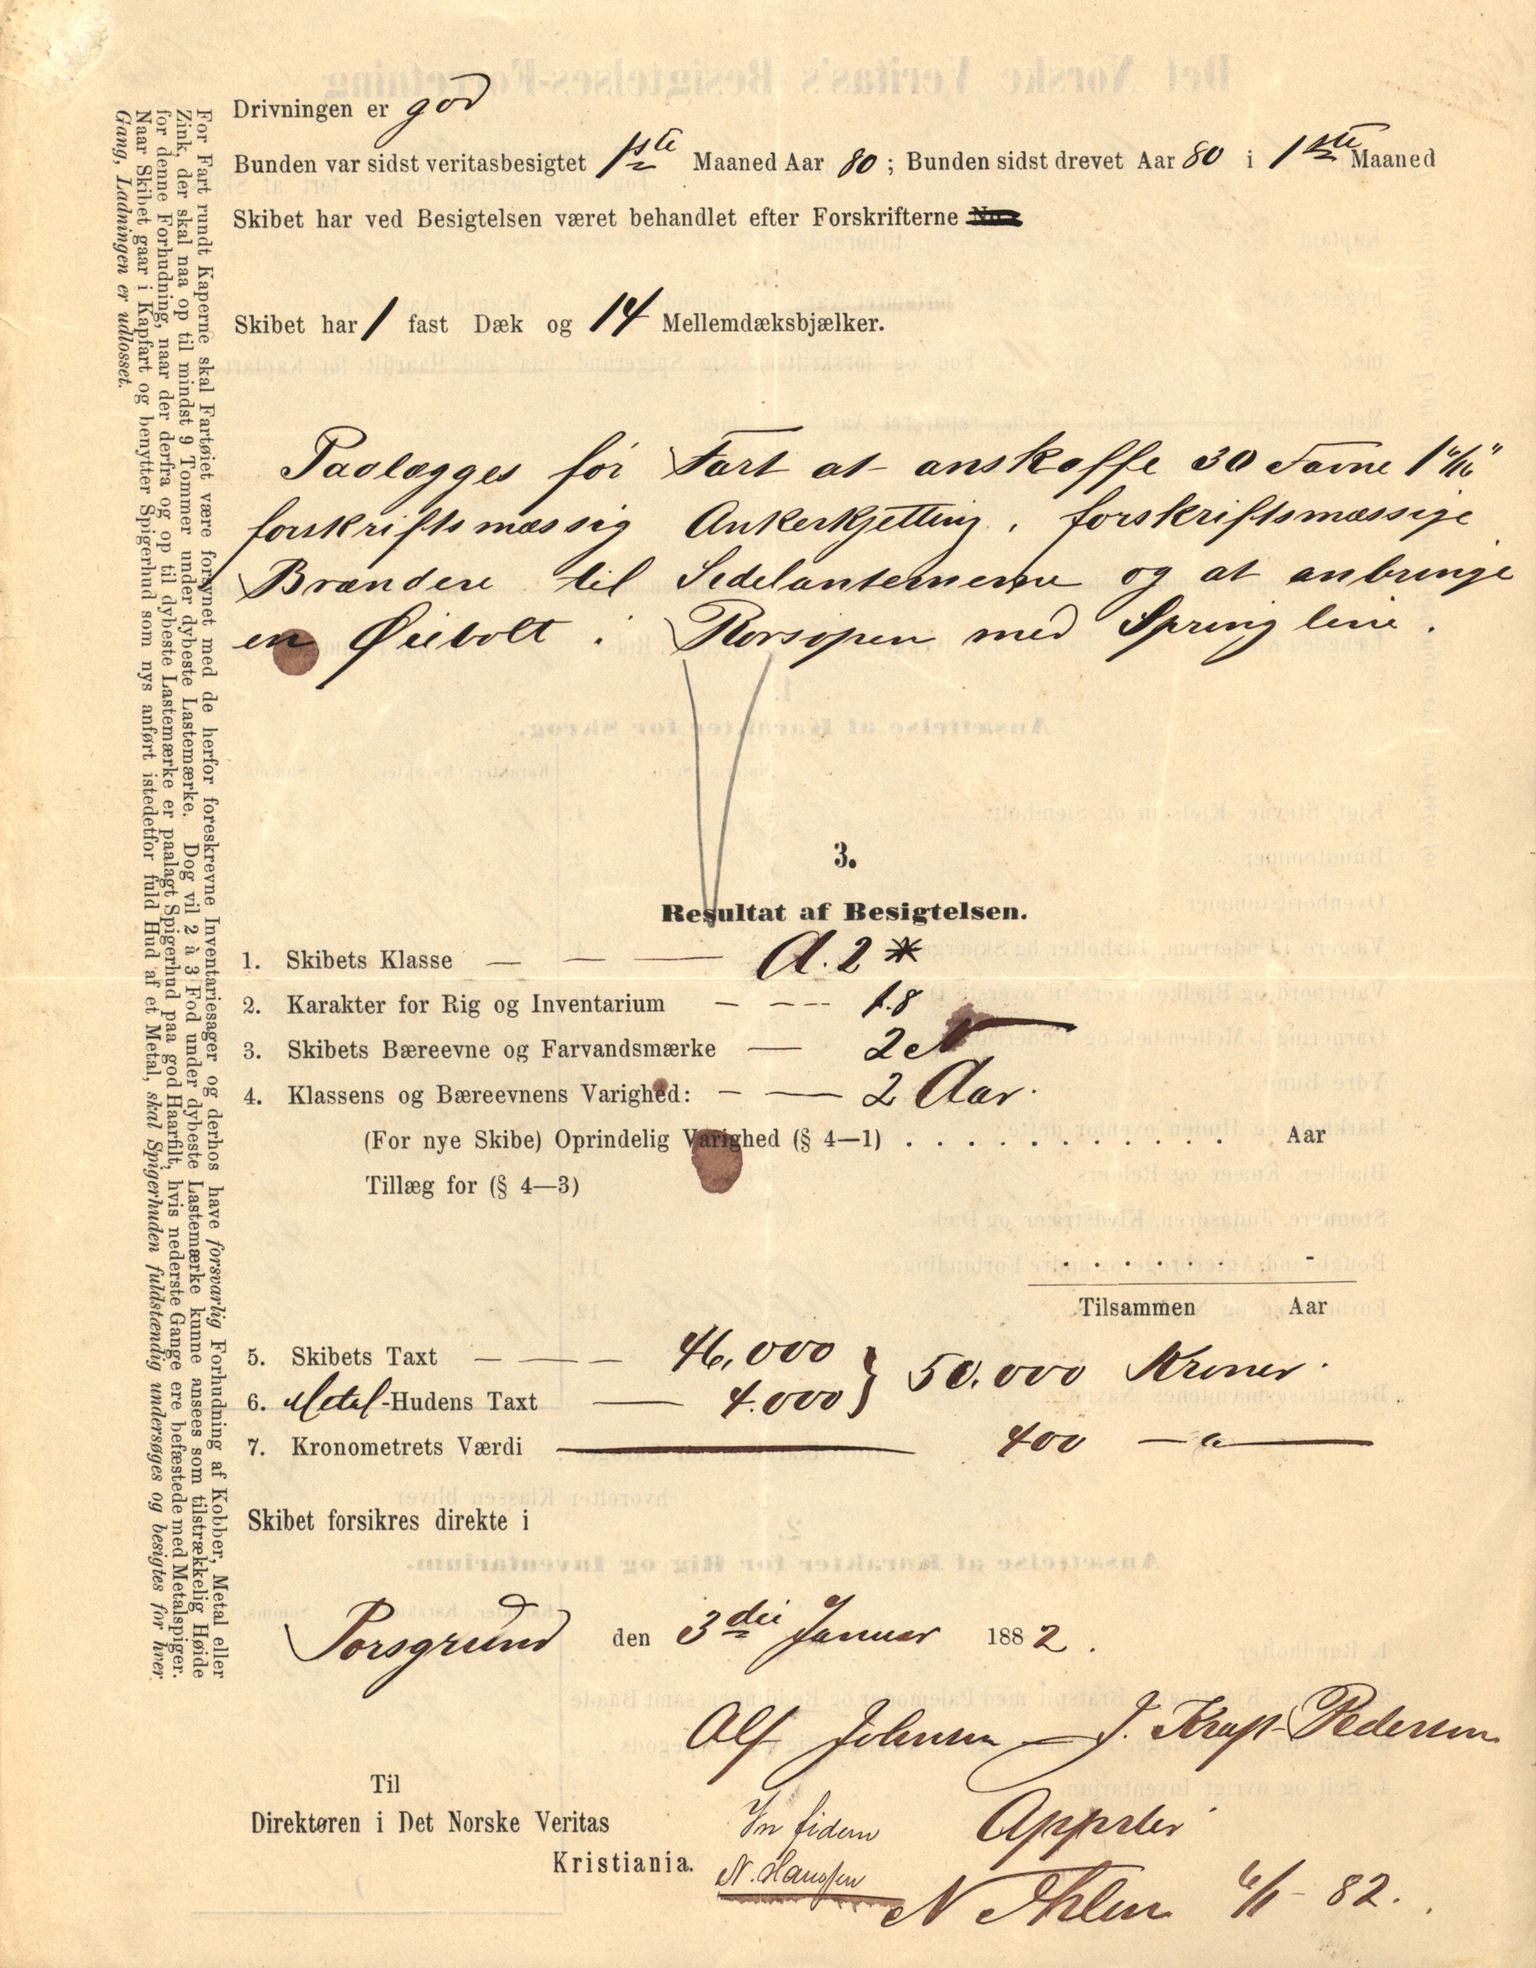 Drivningen er god
Bunden var sidst veritasbesigtet 1ste Maaned Aar 80; Bunden sidst drevet Aar 80 i 1ste Maaned
Skibet har ved Besigtelsen været behandlet efter Forskrifterne No.
Skibet har 1 fast Dæk og 14 Mellemdæksbjælker.
Paalægges før Fart at anskaffe 30 Favne
forskriftsmæssig Ankerkjetting, forskriftsmæssige
Brændere til Sidelanternerne og at anbringe
en Øiebolt i Rorsopen med Springline.
3.
Resultat af Besigtelsen.
1. Skibets Klasse — — — A. 2 *
2. Karakter for Rig og Inventarium — — — 1.8
3. Skibets Bæreevne og Farvandsmærke — 2 N
4. Klassens og Bæreevnens Varighed: — — 2 Aar.
(For nye Skibe) Oprindelig Varighed (§ 4—1) . . . . . . . . . . . . Aar
Tillæg for (§ 4—3)
. . . . . . . -
Tilsammen Aar
5. Skibets Taxt — — — 46,000 } 50.000 Kroner.
6. Metal-Hudens Taxt — 4.000
7. Kronometrets Værdi — 400 —"—
Skibet forsikres direkte i
Porsgrund den 3die Januar 1882.
Alf Johnsen — J. Kraft-Pedersen
Til
Direktøren i Det Norske Veritas
Kristiania.
In fidem
N. Hanssen
Apprbr
N Ihlen 6/1 - 82.
For Fart rundt Kaperne skal Fartøiet være forsynet med de herfor foreskrevne Inventariesager og derhos have forsvarlig Forhudning af Kobber, Metal eller
Zink, der skal naa op til mindst 9 Tommer under dybeste Lastemærke. Dog vil 2 à 3 Fod under dybeste Lastemærke kunne ansees som tilstrækkelig Høide
for denne Forhudning, naar der derfra og op til dybeste Lastemærke er paalagt Spigerhud paa god Haarfilt, hvis nederste Gange ere befæstede med Metalspiger.
Naar Skibet gaar i Kapfart og benytter Spigerhud som nys anført istedetfor fuld Hud af et Metal, skal Spigerhuden fuldstændig undersøges og besigtes for hver
Gang, Ladningen er udlosset.